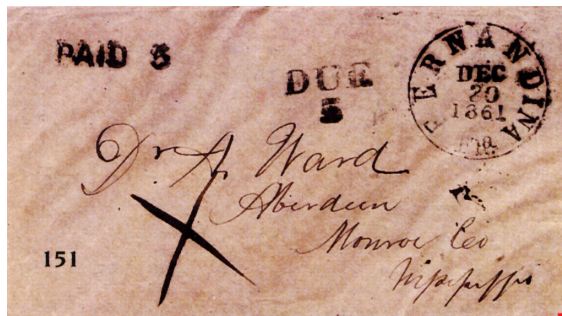 PAID 5
DUE
5
FERNANDINA
DEC
20
1861
Fla.
Dr. A. Ward
Aberdeen
Monroe Co
Mississippi
151